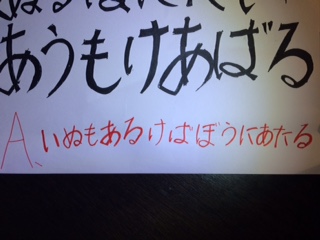 あうもけあばる
A、いぬもあるけばぼうにあたる